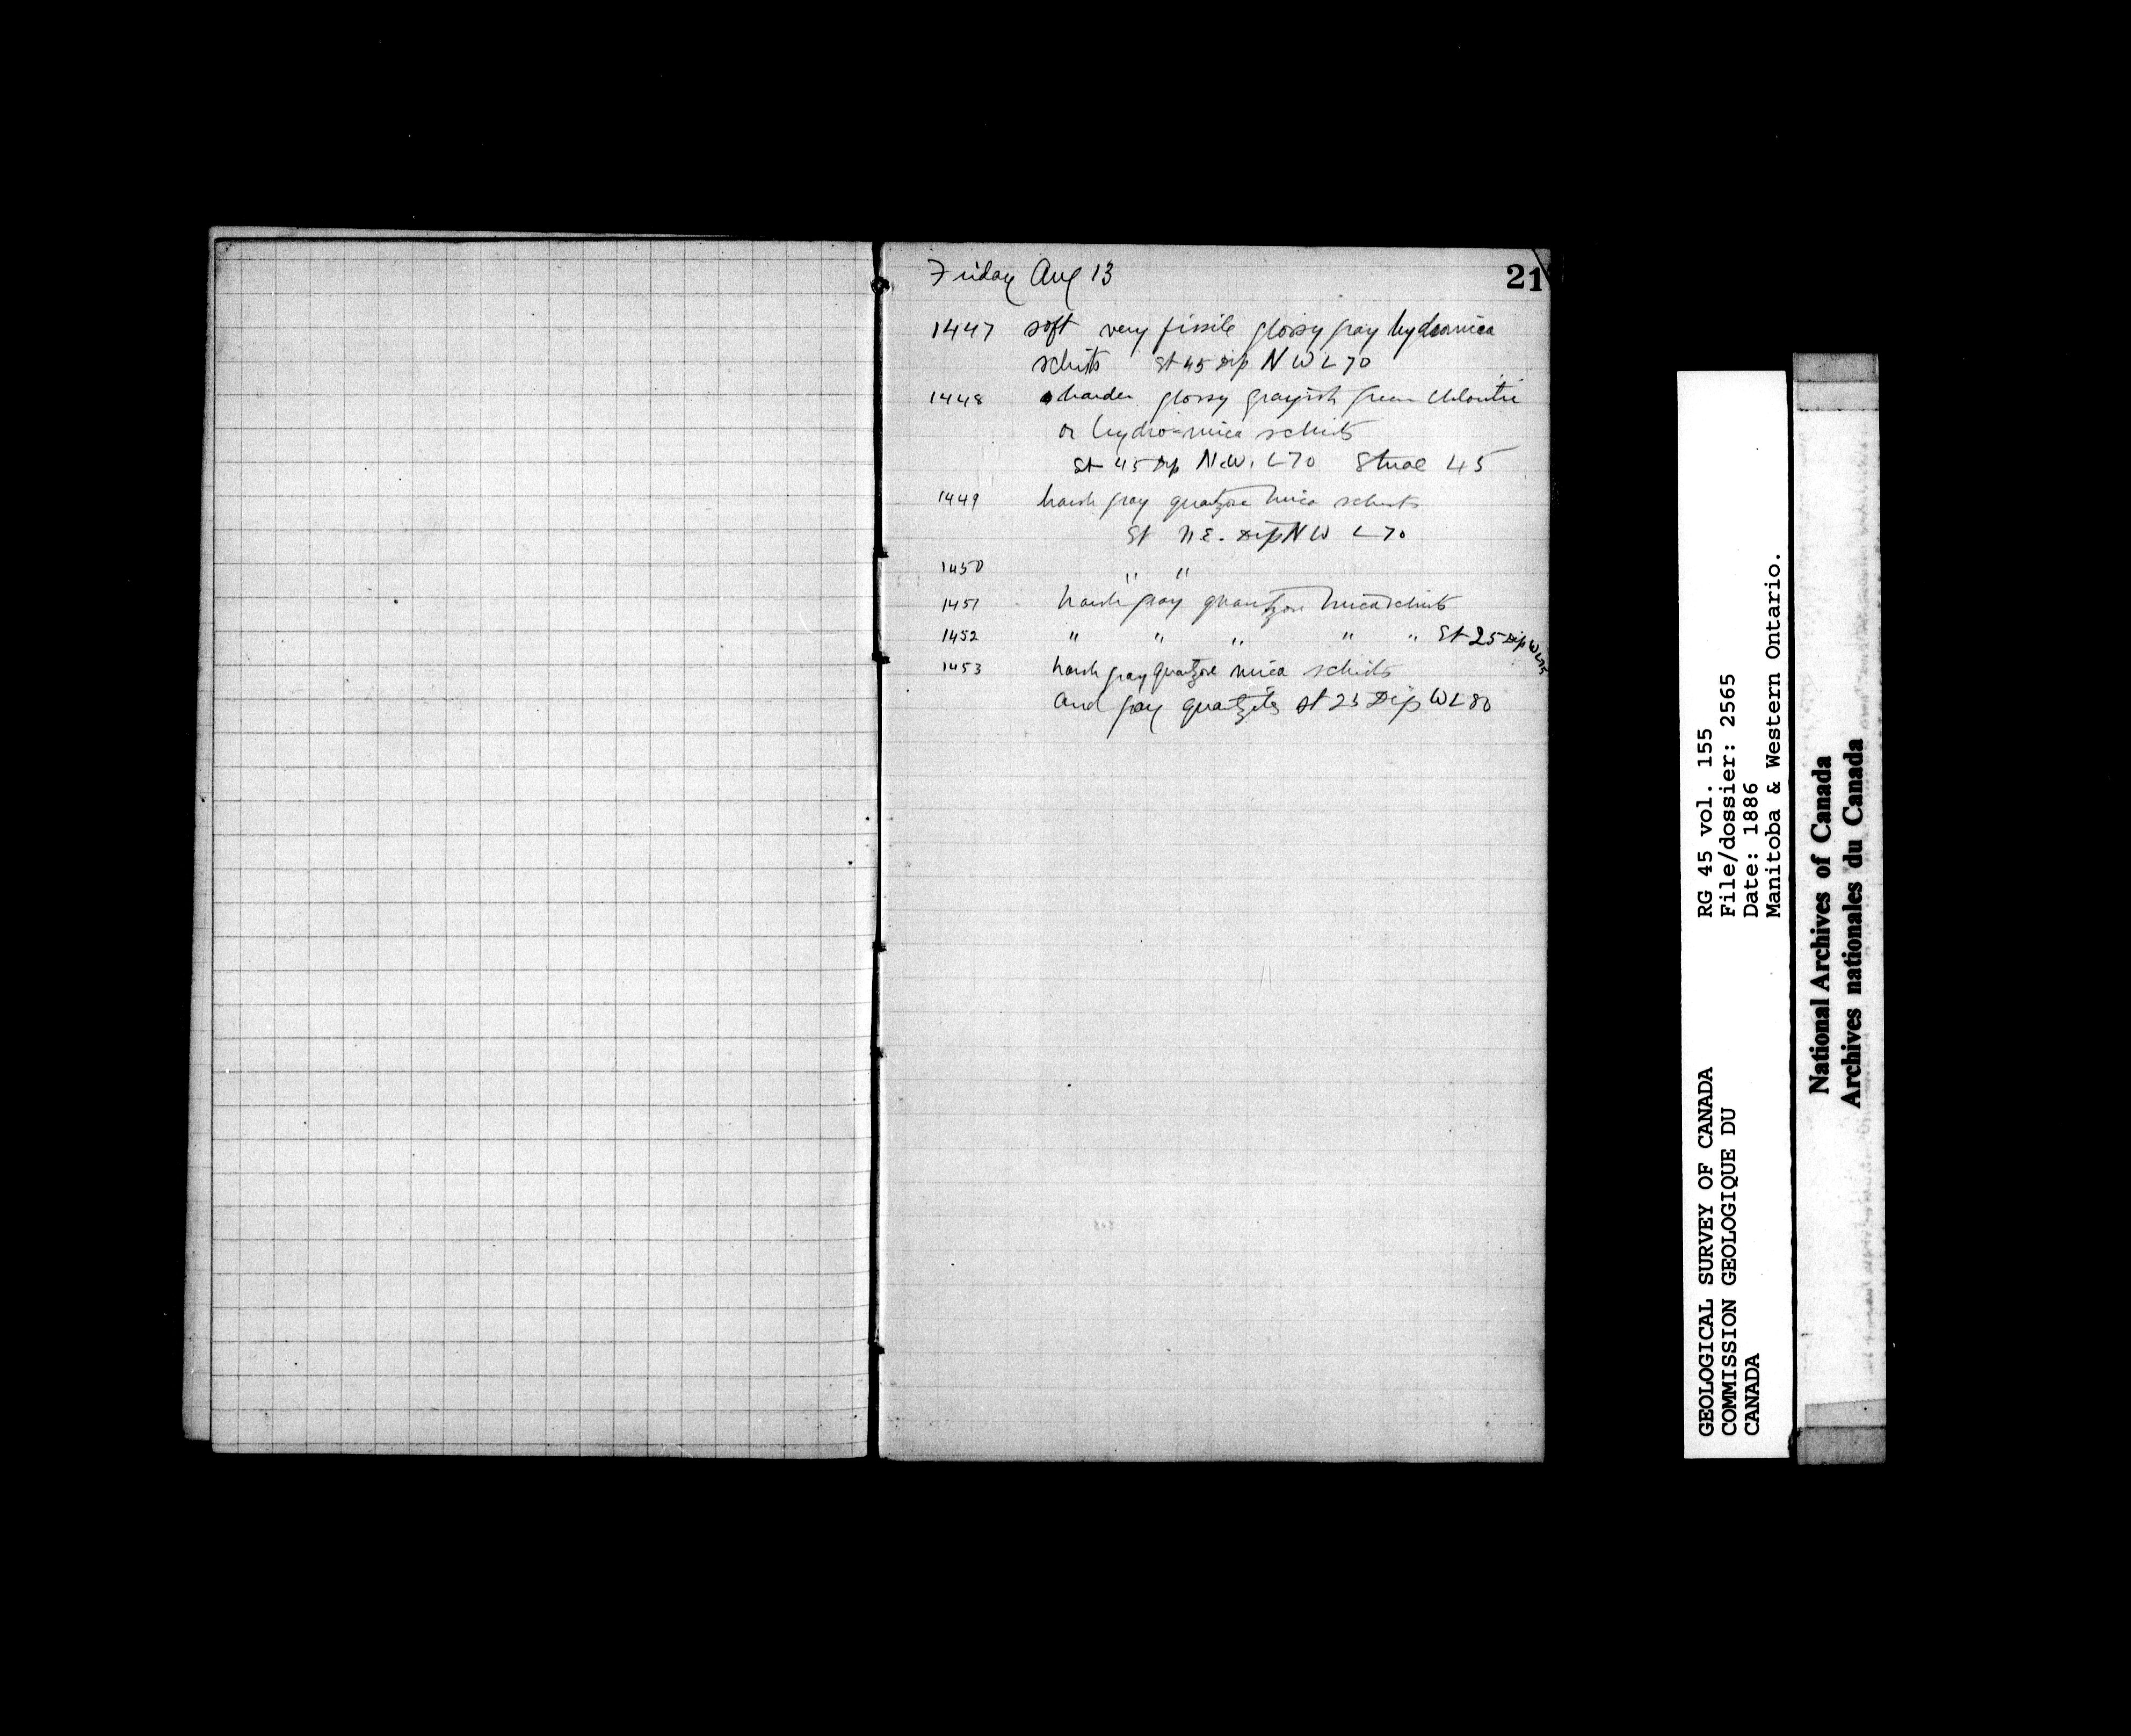 21
Friday Aug 13
1447 soft very fissile glossy gray hydromica
schists St 45 Dip N W L 70
1448 harder glossy grayish green chloritic
or hydro-mica schists
St 45 Dip N.W. L 70 45
1449 harsh gray quartzose mica schists
St N E. Dip N W L 70
1450 " "
1451 harsh gray quartzose mica schists
1452 " " " " " St 25 Dip W L 75
1453 harsh gray quartzose mica schists
and gray quartzites St 25 Dip W L 80
RG 45 vol. 155
File/dossier: 2565
Date: 1886
Manitoba & Western Ontario.
GEOLOGICAL SURVEY OF CANADA
COMMISSION GEOLOGIQUE DU
CANADA
National Archives of Canada
Archives nationales du Canada